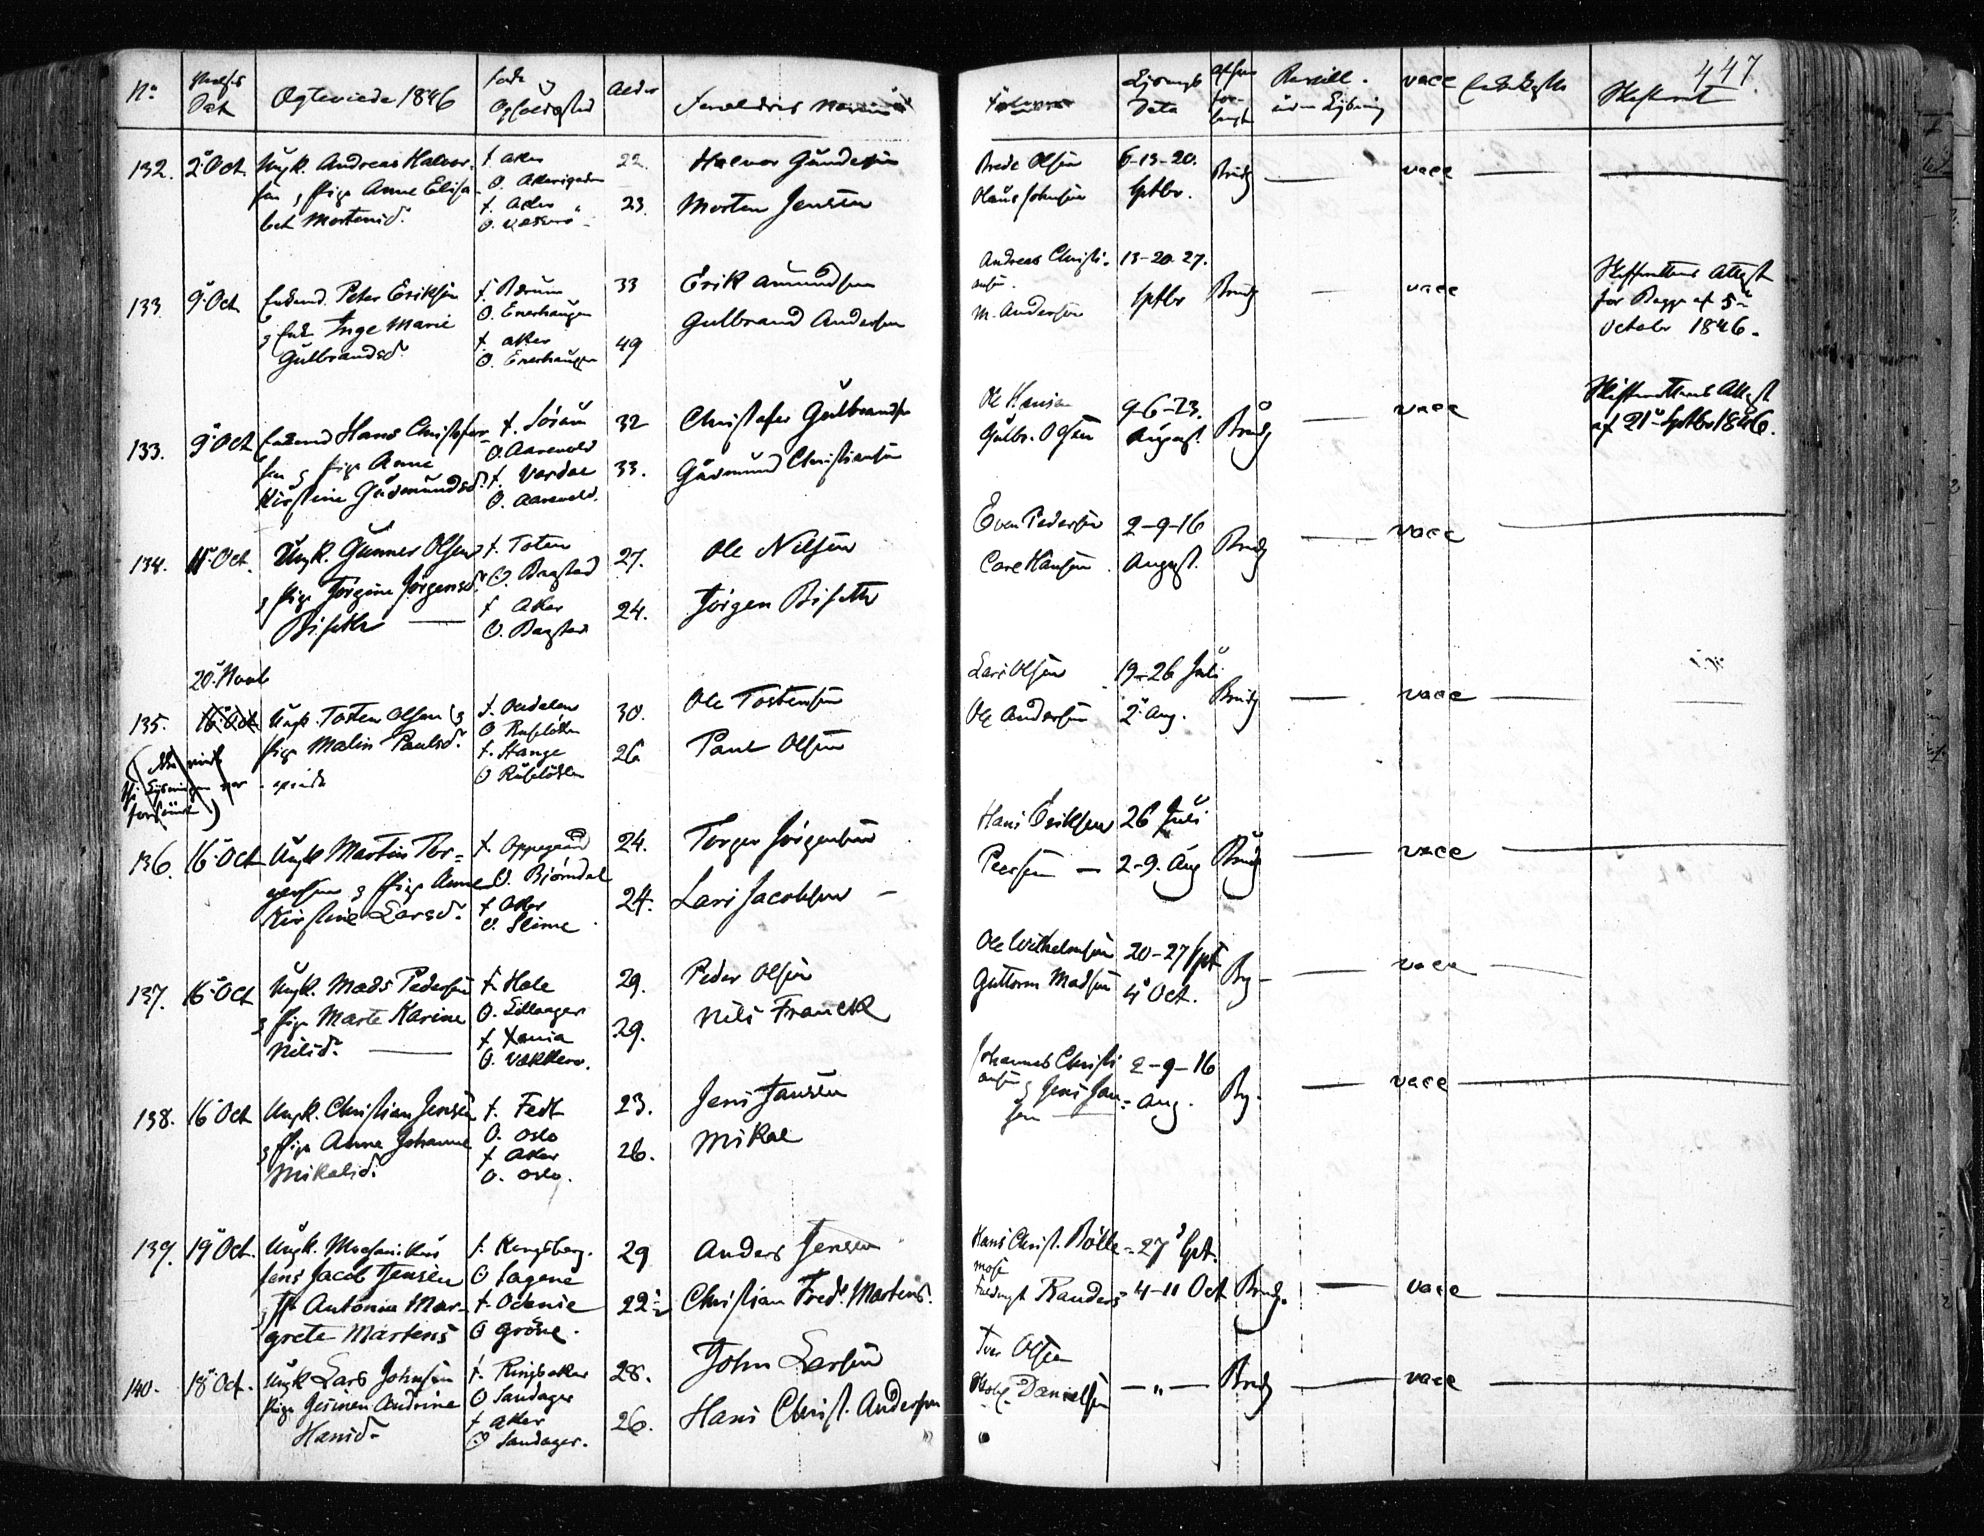 447.
No
Dat
Ægteviede 1846
Alder
Data
vacc
132. 2 Oct Ungk. Andreas Halvor-
sen & Pige Anne Elisa-
bet Mortensd.
f. Aker
O.
f. Aker
O.
22.
23.
Halvor Gundersen
Morten Jensen
Brede Olsen
Claus Johnsen
6-13-20.
Sptbr.
Brudg
vacc
133 9 Oct Enkemd. Peter Eriksen
& Enk Inge Marie
Gulbrandsd.
f. Bærum
O. Enerhaugen
f. Aker
O. Enerhaugen
33
49
Erik Amundsen
Gulbrand Andersen
Andreas Christi-
ansen.
M. Andersen
13-20-27.
Sptbr
Brudg
vacc
Skifterettens Attest
for Begge af 5
October 1846.
133. 9 Oct Enkemd Hans Christofer-
sen & Pige Anne
Kirstine Gudmundsd.
f. Sørum
O. Aarevold
f. Vardal
O. Aarevold.
32
33.
Christofer Gulbrands
Gudmund Christiansen
Ole Hansen
Gulbr. Olsen
9-6-23.
August.
Brudg
vacc
Skifterettens Attest
af 21 Sptbr 1846.
134. 11 Oct. Ungk. Gunner Olsen
& Pige Jørgine Jørgensd.
Biseth
f. Toten
O. Bagstad
f. Aker
O. Bagstad
27.
24.
Ole Nilsen
Jørgen Biseth
Even Pedersen
Carl Hansen
2-9-16
August.
Brudg
vacc
20. Novb
135. 16 Oct Ungk. Tosten Olsen &
Pige Malin Paulsd.
f. Oudalen
O Rusløkken
f. Stange
O Rusløkken
30.
26
Ole Tostensen
Paul Olsen
Lars Olsen
Ole Andersen
19-26 Juli
2 Aug.
Brudg
vacc
136. 16 Oct Ungk Martin Tor-
gersen & Pige Anne
Kirstine Larsd.
f. Oppegaard
O. Bjørndal
f. Aker
O. Slime
24.
24.
Torger Jørgensen
Lars Jacobsen
Hans Eriksen
Peersen
26 Juli
2-9. Aug
Brudg
vacc
137. 16 Oct Ungk. Mads Pedersen
& Pige Marte Karine
Nilsd.
f. Hole
O. Lilleager
f. Xania
O. Vækkerø.
29.
29.
Peder Olsen
Nils Franck
Ole Wilhelmsen
Guttorm Madsen
20-27 Spt
4 Oct.
Brg-
vacc
138. 16 Oct Ungk. Christian Jensen
& Pige Anne Johanne
Mikalsd.
f. Fedt
O. Oslo
f. Aker
O. Oslo.
23.
26.
Jens Jansen
Mikal
Johannes Christi
ansen & Jens Jan-
sen
2-9-16
Aug.
Brg-
vacc
139. 19 Oct. Ungk. Mechanikus
Jens Jacob Jensen
& Pge Antonia Mar-
grete Martens
f. Kongsberg.
O Sagene
f. Odense
O Grøne.
29
22½
Anders Jensen
Christian Fredr. Martens.
Hans Christ. Bølle-
mose
Randers
27 Spt.
4-11 Oct
Brudg.
vacc
140. 18 Oct. Ungk Lars Johnsen
Pige Andrine
Hansd.
f. Ringsaker
O Sandager
f Aker
O Sandager.
28.
26.
John Larsen
Hans Christ. Andersen
Iver Olsen
Danielsen
— " —
Brudg
vacc